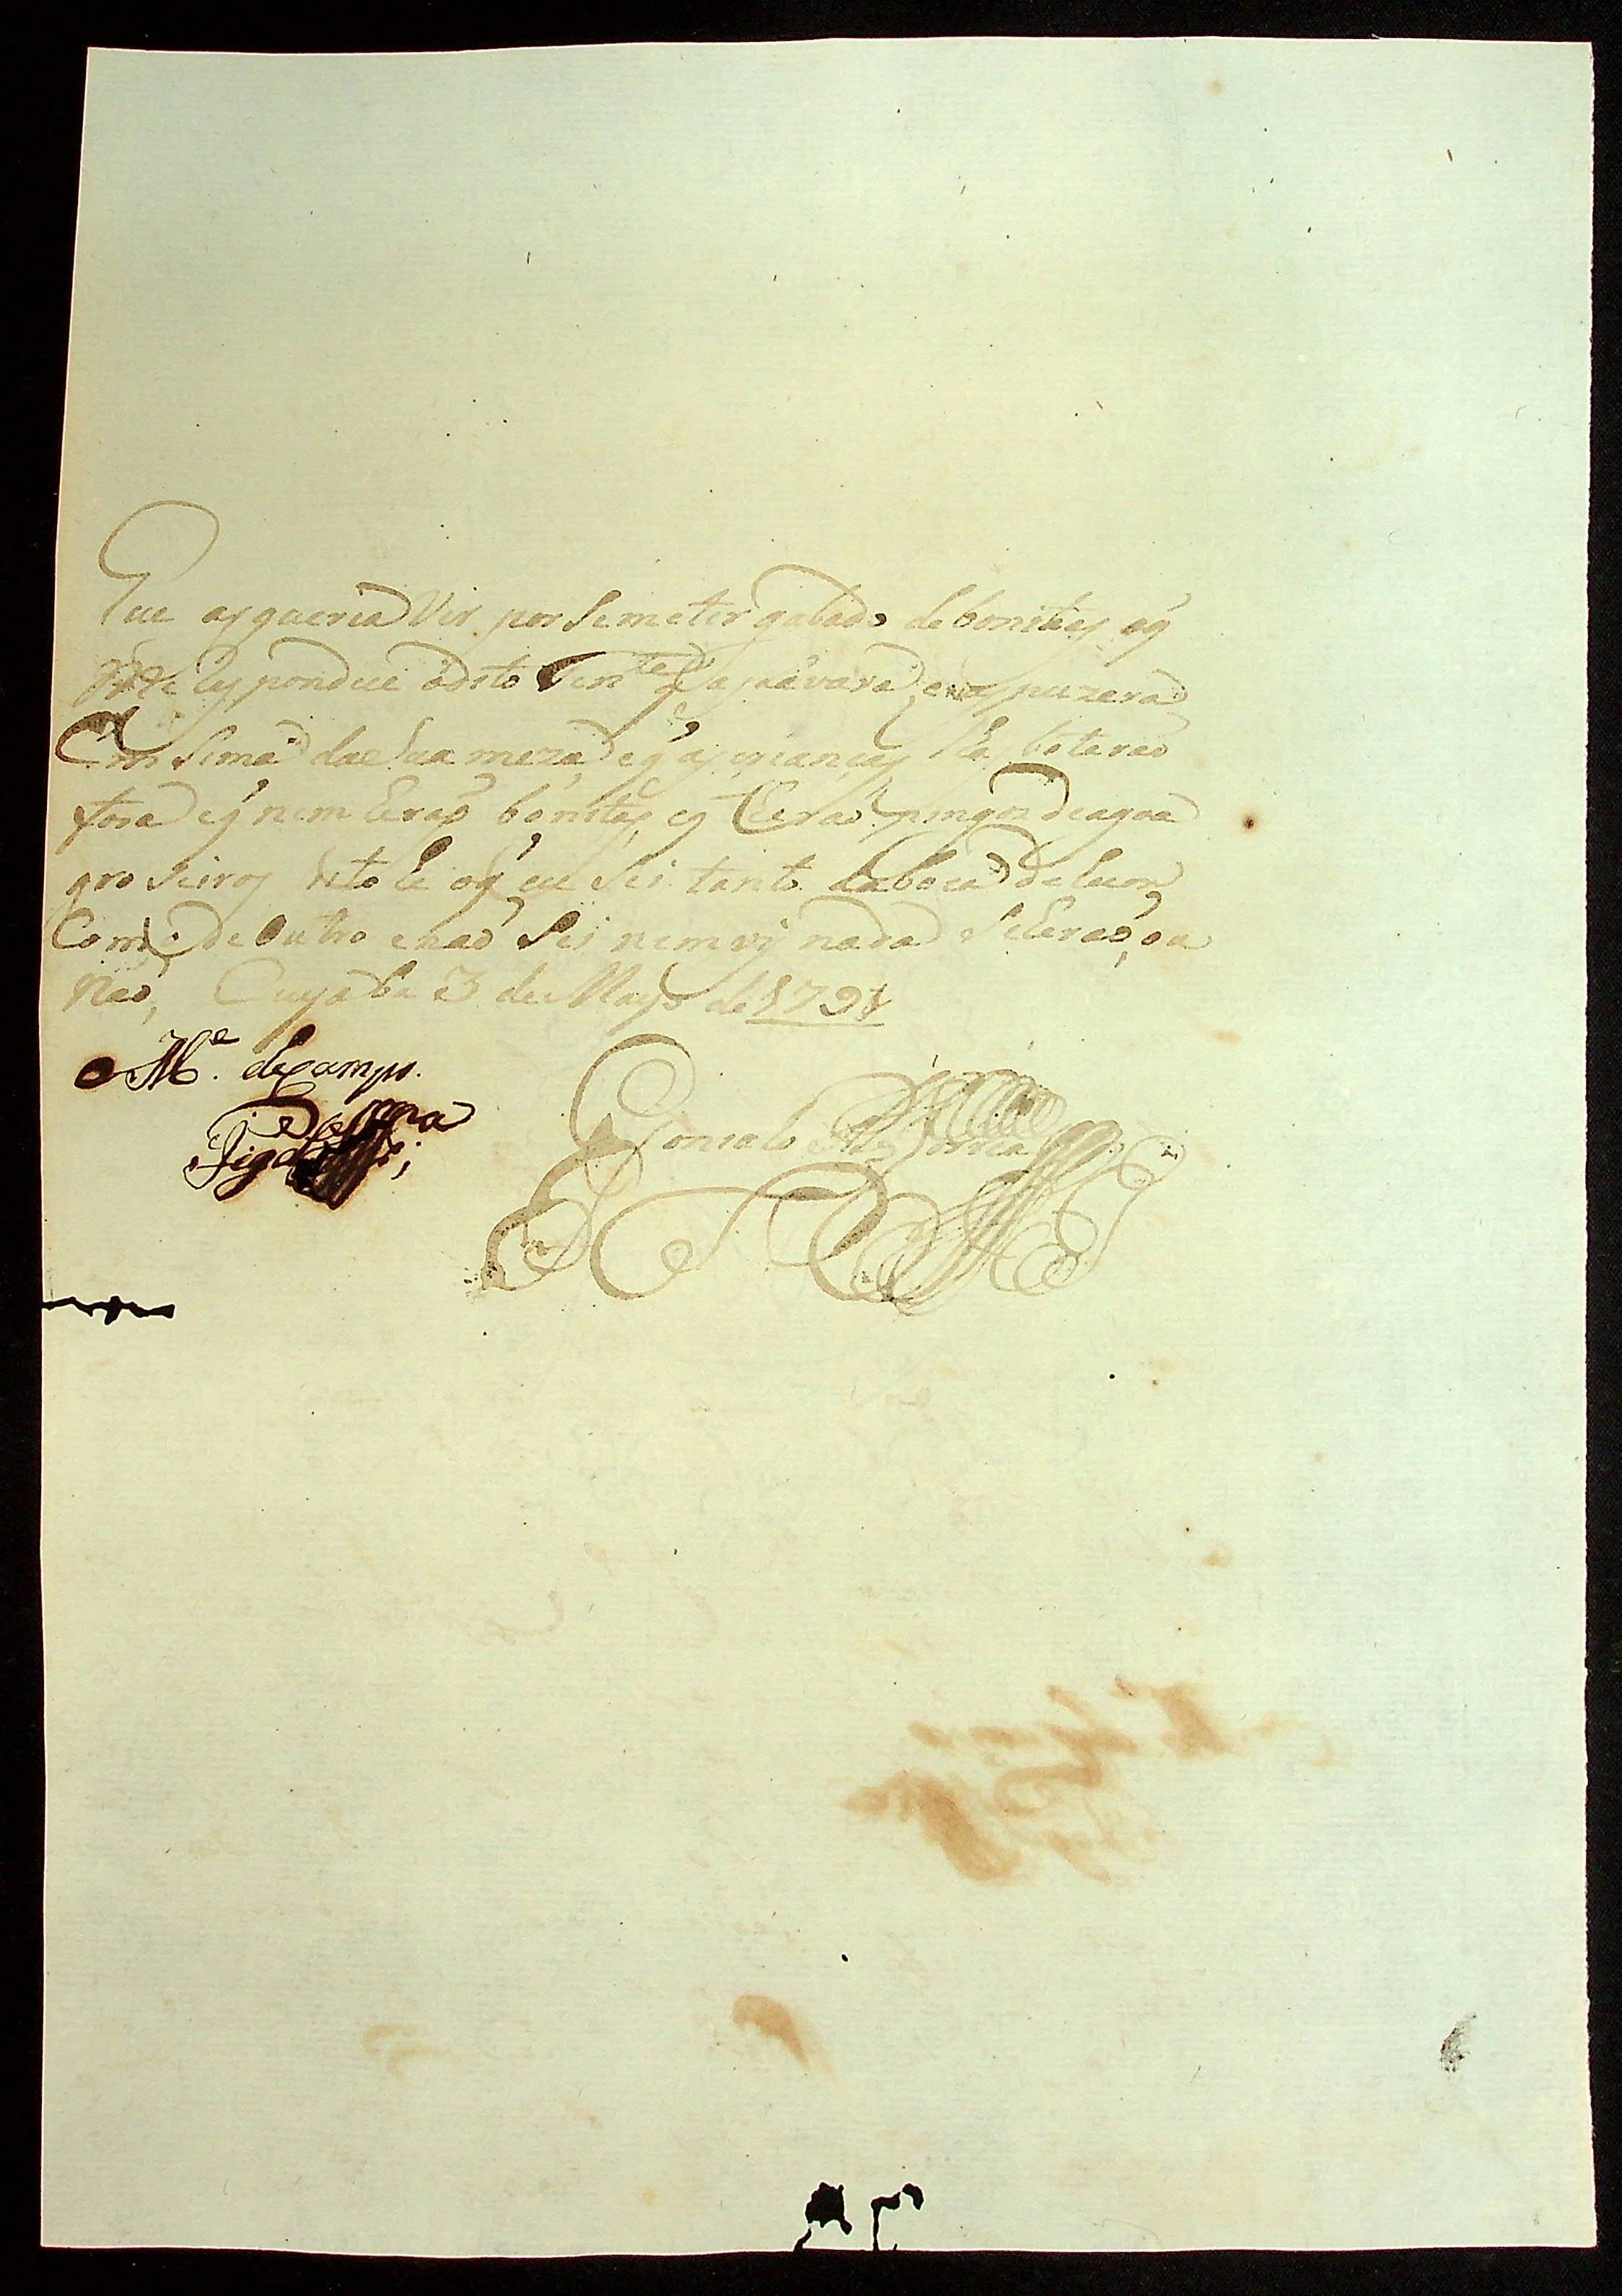 Que as queria Vir por Se meter gabado de bonitas oq̃
Respondeu o dito Ten.te q̃ as Lavara e as puzera
Em Sima da Sua meza, e q̃ as crianças las botaraõ
fora e q̃ nem Eraõ bonitas, e q̃ Eraõ pingos de agoa
gro Seiros isto he oq̃ eu Sei tanto da boca de hum
Como de Outro e naõ Sei nem vy nada Se Eraõ, ou
Naõ, Cuyaba 3 de Mayo de 1791
M.e de Campo
Gonsalo